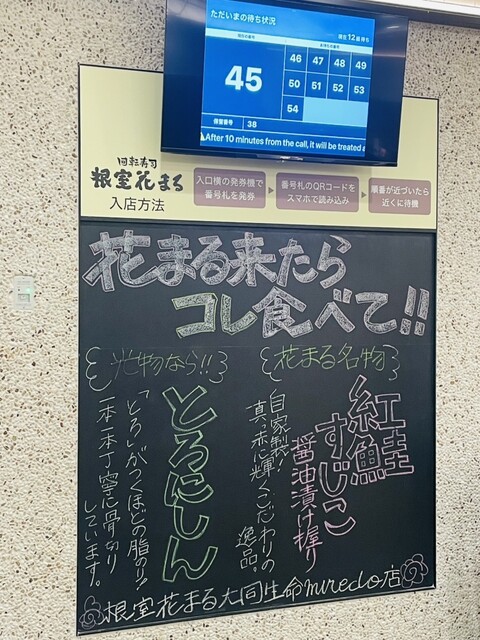 ただいまの待ち状況
現在12番待ち
45
46 47 48 49
50 51 52 53
54
保留番号 38
▲After 10 minutes from the call, it will be treated a
回転寿司
根室花まる
入店方法
入口横の発券機で
番号札を発券
番号札のQRコードを
スマホで読み込み
順番が近づいたら
近くに待機
花まる来たら
コレ食べて!!
花まる名物
紅鮭
すじこ
醤油漬け握り
自家製!
真っ赤に輝く、こだわりの
逸品。
光物なら!!
とろにしん
「とろ」がつくほどの脂のり!
一本一本丁寧に骨切り
しています。
根室花まる大同生命miredo店